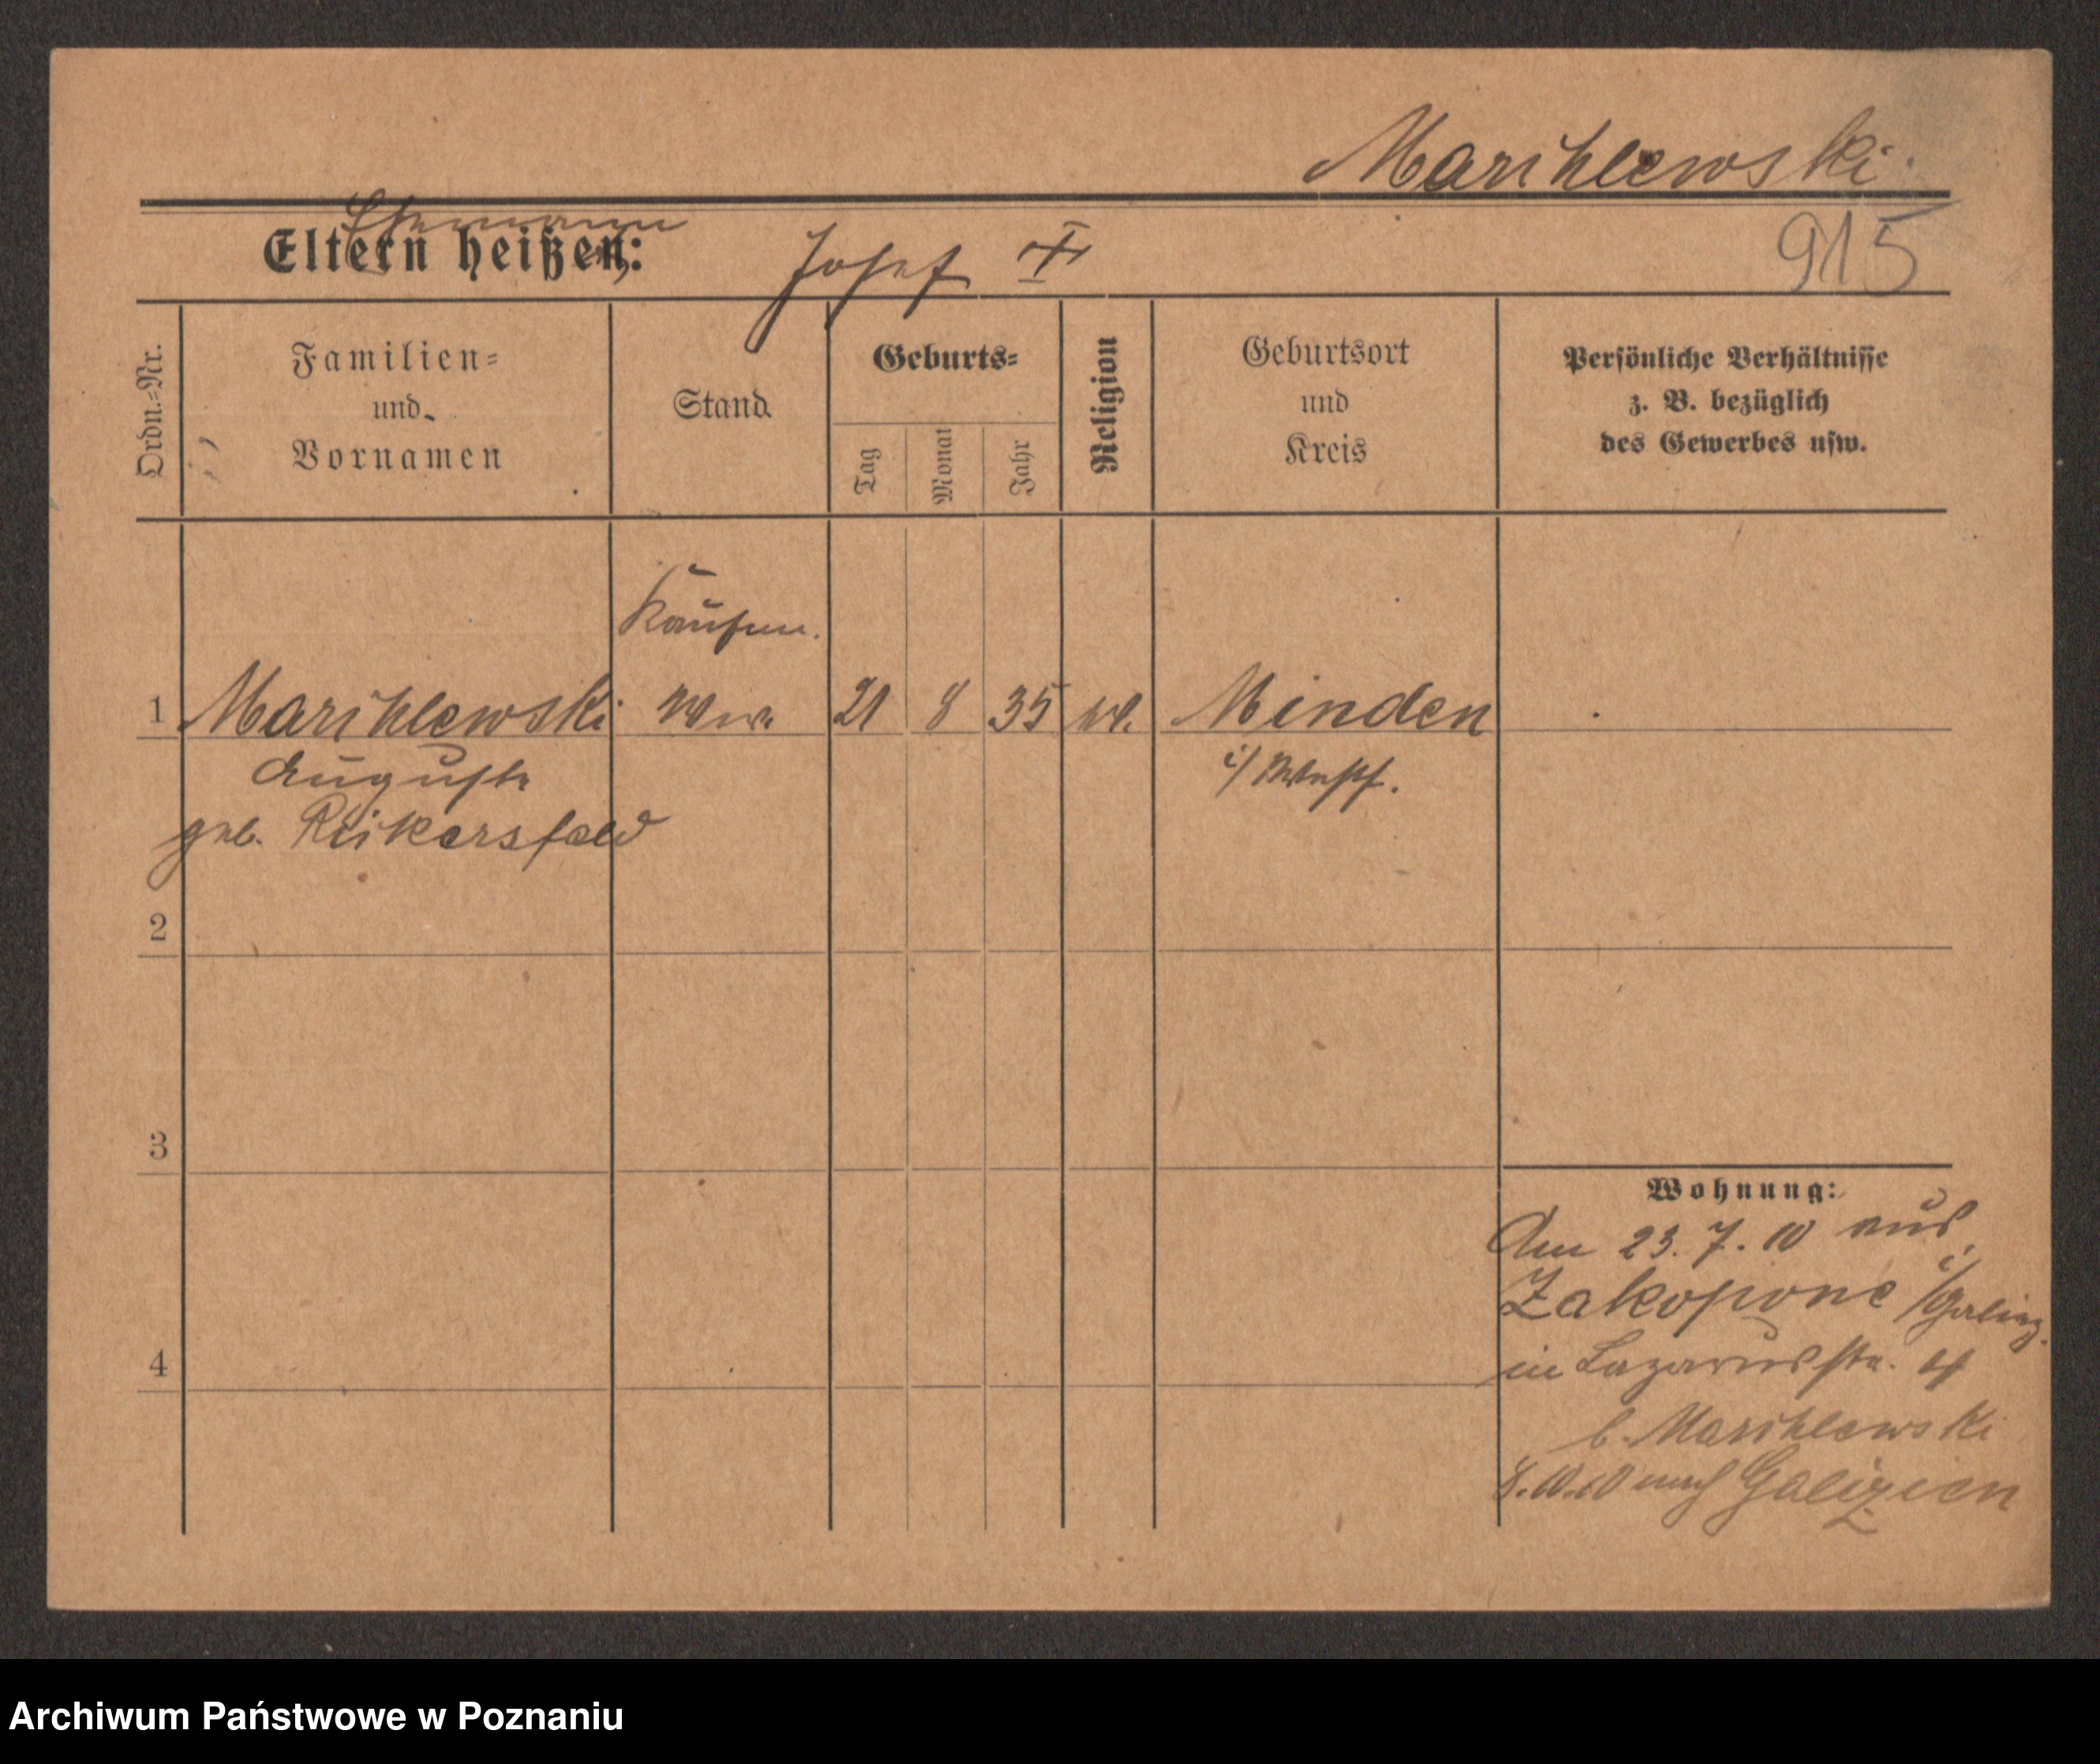 Marchlewski.
Ehemann
Eltern heißen: Josef †
915
Ordn.=Nr.
Familien=
und
Vornamen
Stand
Geburts=
Tag
Monat
Jahr
Religion
Geburtsort
und
Kreis
Persönliche Verhältnisse
z. B. bezüglich
des Gewerbes usw.
Kaufm.
1 Marchlewski Ww. 21 8 35 Minden
Auguste i/Westf.
geb. Rükersfeld
2
3
4
Wohnung:
Am 23. 7. 10 aus
Zakopone i/Galiz.
in Lazarusstr. 4
b. Marchlewski
8.10.10 nach Galizien
Archiwum Państwowe w Poznaniu